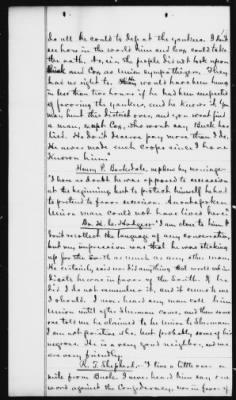 do all he could to defeat the yankees. I don't
see how in the world him and Cox could take
the oath. No, sir, the people did not look upon
and Cox as Union sympathizers. They
has no right to. would have been hung
in less than two hours if he had been suspected
of favoring the yankees, and he knows it. You
may hunt this district over, and you won't find
a man, except Cox, who won't say Buck has
lied. He don't deserve pay more than I do.
He never made such crops since I have
known him."
Henry P. Barksdale, nephew by marriage-
"I have no doubt he was opposed to secession
at the beginning but to protect himself he had
to pretend to favor secession. An outspoken
Union man could not have lived here."
Dr. H. C. Hodges "I am close to him. I
don't recollect the language of any conversation,
but my impression was that he was sticking
up for the South as much as any other man.
He certainly said nor did anything that would in-
dicate he was in favor of the North. If he
did I do not remember it, and it seems to me
I should. I never heard any man call him
Union until after Sherman came, and then some
one told me he claimed to be Union to Sherman.
I am not positive who, but probably some of his
negroes. He is a very good neighbor, and we
are very friendly.
Shepherd- "I live a little over a
mile from Buck. I never heard him say one
word against the Confederacy, nor in favor of